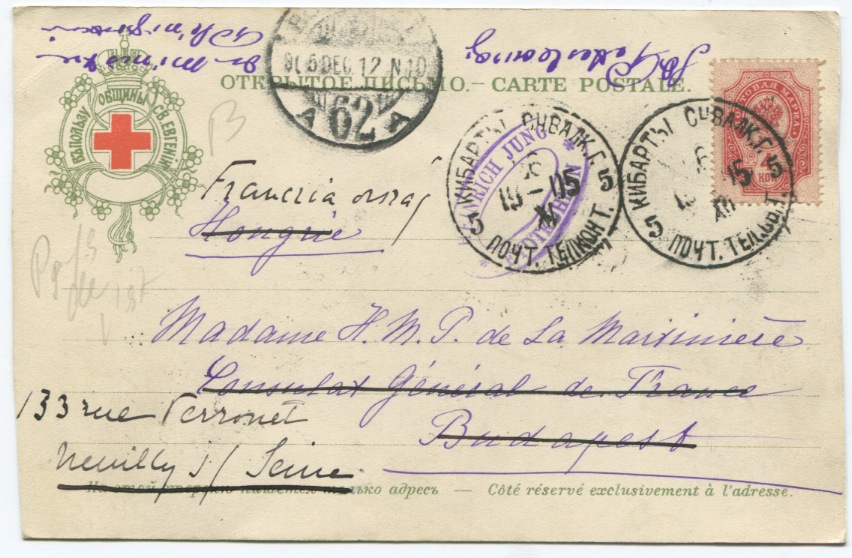 ОТКРЫТОЕ ПИСЬМО. — CARTE POSTALE.
ВЪ ПОЛЬЗУ ОБЩИНЫ СВ. ЕВГЕНІИ
905 DEC. 12 N 10
A 62 A
КИБАРТЫ СУВАЛК.Г.
5 5
6
19-05
XII
ПОЧТ. ТЕЛ. КОНТ.
КИБАРТЫ СУВАЛК.Г.
5 5
6
XII
ПОЧТ. ТЕЛ.
JUNG
МАРКА
В
Francziaország
Hongrie
Madame H. M. P. de La Martinière
Consulat Général de France
133 rue Perronet
Budapest
Neuilly s/ Seine
На этой сторонѣ пишется только адресъ — Côté réservé exclusivement à l'adresse.